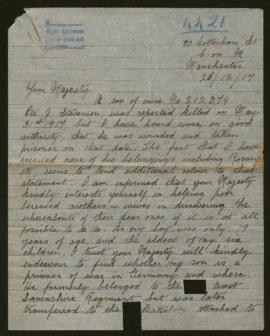 4421
80 Cottenham St
C-on-M
Manchester
26/12/17
Your Majesty
A son of mine No. 202,374
Pte J. Stevenson, was reported killed on May
3rd 1917, but I have heard since on good
authority, that he was wounded and taken
prisoner on that date. The fact that I have
received none of his belongings including Rosary
etc. seems to lend additional colour to that
statement. I am informed that your Majesty
kindly interests yourself in helping poor
bereaved mothers & wives in discovering the
whereabouts of their dear ones, if it is at all
possible to do so. As my boy was only 19
years of age and the oldest of my six
children, I trust your Majesty will kindly
endeavour to find whether my son is a
prisoner of war in Germany and where.
He formerly belonged to the East
Lancashire Regiment but was later
transferred to the Battalion attached to